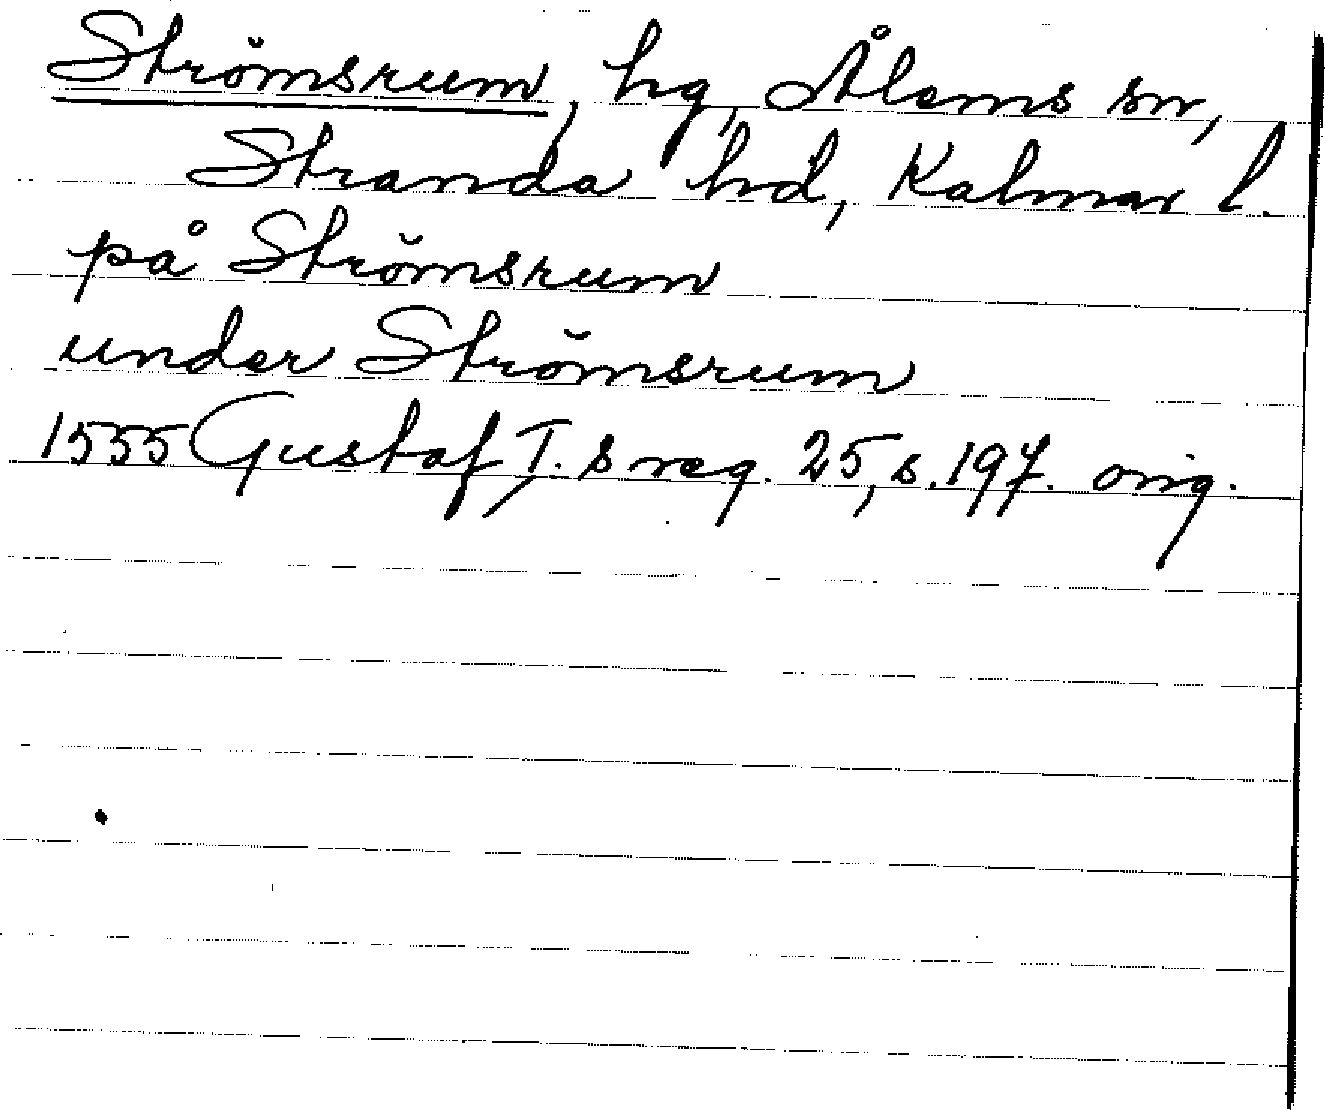 Strömsrum, hg, Ålems sn,
Stranda hd, Kalmar l.
på Strömsrum
under Strömsrum
1555 Gustaf I:s reg. 25, s. 197. orig.